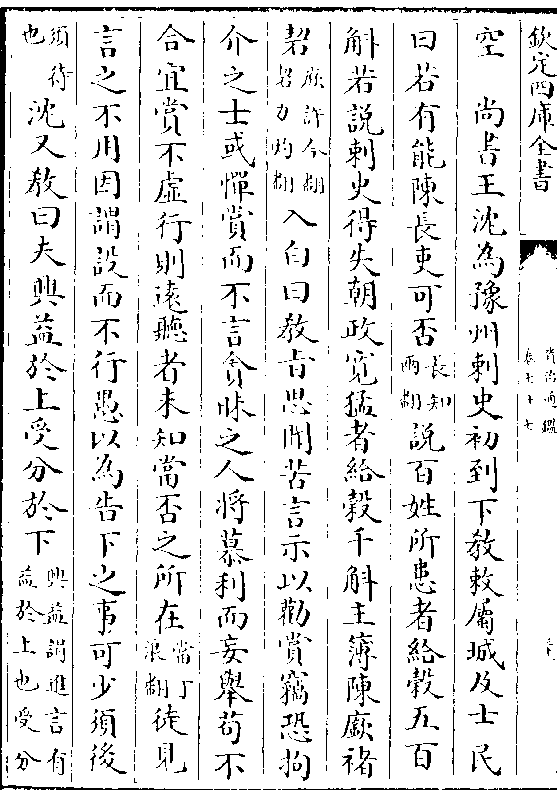 欽定四庫全書
資治通鑑
卷七十七
空　尚書王沈為豫州刺史初到下敎敕屬城及士民
曰若有能陳長吏可否長知兩翻說百姓所患者給穀五百
斛若說刺史得失朝政寛猛者給穀千斛主簿陳廞禇
䂮廞許今翻䂮力灼翻入白曰敎旨思聞苦言示以勸賞竊恐拘
介之士或憚賞而不言貪昧之人將慕利而妄舉苟不
合宜賞不虚行則逺聽者未知當否之所在當丁浪翻徒見
言之不用因謂設而不行愚以為告下之事可少須後
須待也沈又敎曰夫興益於上受分於下興益謂進言有益於上也受分